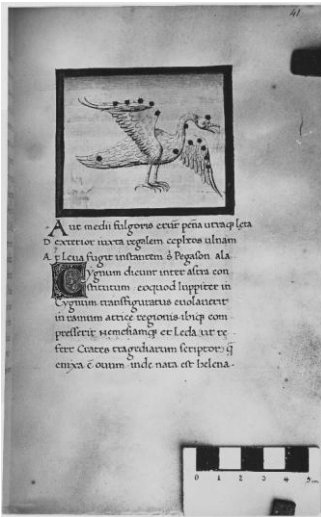 41
Aut medii fulgoris erunt pena utraq; leta
Dexterior iuxta regalem cepheos ulnam
At leua fugit instantem s Pegason ala
Cygnum dicunt inter astra con
stitutum eoquod Iuppiter in
Cygnum transfiguratus euolauerit
in ramum attice regionis ibiq; com
presserit Nemesiamq; et Leda ut re
fert Crates tragediarum scriptor q
enixa e ouum inde nata est helena.
0 1 2 3 4 5